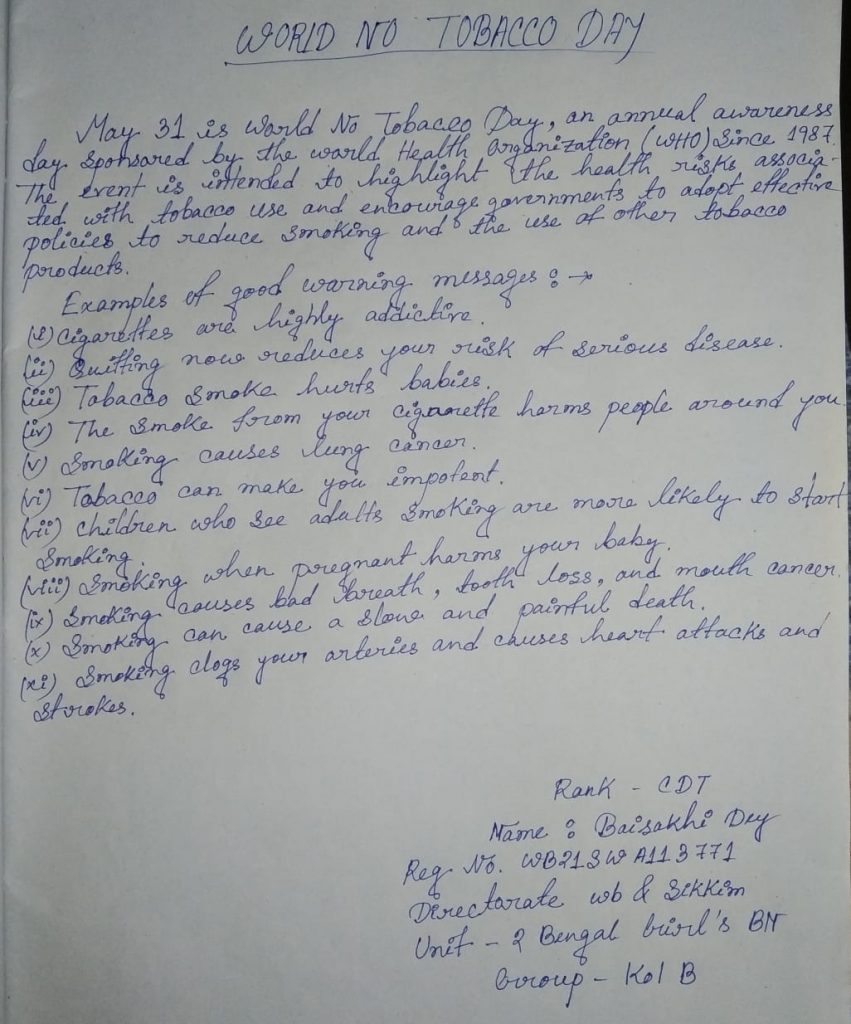 WORLD NO TOBACCO DAY
May 31 is world No Tobacco Day, an annual awareness
day sponsared by the world Health Organization (WHO) since 1987.
The event is intended to highlight the health risks associa-
ted with tobacco use and encourage governments to adopt effective
policies to reduce smoking and the use of other tobacco
products.
Examples of good warning messages : →
(i) cigarettes are highly addictive.
(ii) Quitting now reduces your risk of serious disease.
(iii) Tobacco smoke hurts babies.
(iv) The smoke from your cigarette harms people around you.
(v) Smoking causes lung cancer.
(vi) Tobacco can make you impotent.
(vii) children who see adults smoking are more likely to start
smoking.
(viii) Smoking when pregnant harms your baby.
(ix) Smoking causes bad breath, tooth loss, and mouth cancer.
(x) Smoking can cause a slow and painful death.
(xi) Smoking clogs your arteries and causes heart attacks and
strokes.
Rank - CDT
Name : Baisakhi Dey
Reg No. WB21SWA113771
Directorate wb & Sikkim
Unit - 2 Bengal Girl's BN
Group - Kol B